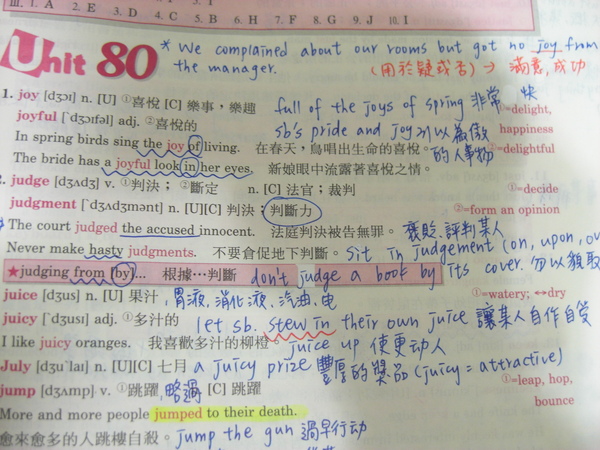 III. 1. A 2. E 3. D 4. C 5. B 6. H 7. F 8. G 9. J 10. I
Unit 80
* We complained about our rooms but got no joy from
the manager.
(用於疑或否) → 滿意,成功
1. joy [dʒɔɪ] n. [U] ①喜悅 [C] 樂事,樂趣 full of the joys of spring 非常快
①=delight,
happiness
joyful [ˈdʒɔɪfəl] adj. ②喜悅的 sb's pride and joy 引以為傲的人事物
②=delightful
In spring birds sing the joy of living. 在春天,鳥唱出生命的喜悅。
The bride has a joyful look in her eyes. 新娘眼中流露著喜悅之情。
2. judge [dʒʌdʒ] v. ①判決;②斷定 n. [C] 法官;裁判
①=decide
judgment [ˈdʒʌdʒmənt] n. [U][C] 判決;判斷力
②=form an opinion
The court judged the accused innocent. 法庭判決被告無罪。 褒貶,評判某人
Never make hasty judgments. 不要倉促地下判斷。 sit in judgement (on, upon, ov
★judging from (by)... 根據…判斷 don't judge a book by its cover. 勿以貌取
juice [dʒus] n. [U] 果汁,胃液,消化液、汽油、电
①=watery; ↔dry
juicy [ˈdʒusɪ] adj. ①多汁的 let sb. stew in their own juice 讓某人自作自受
I like juicy oranges. 我喜歡多汁的柳橙 juice up 使更动人
July [dʒuˈlaɪ] n. [U][C] 七月 a juicy prize 豐厚的獎品 (juicy = attractive)
jump [dʒʌmp] v. ①跳躍,略過 [C] 跳躍
①=leap, hop,
bounce
More and more people jumped to their death.
愈來愈多的人跳樓自殺。 jump the gun 過早行动